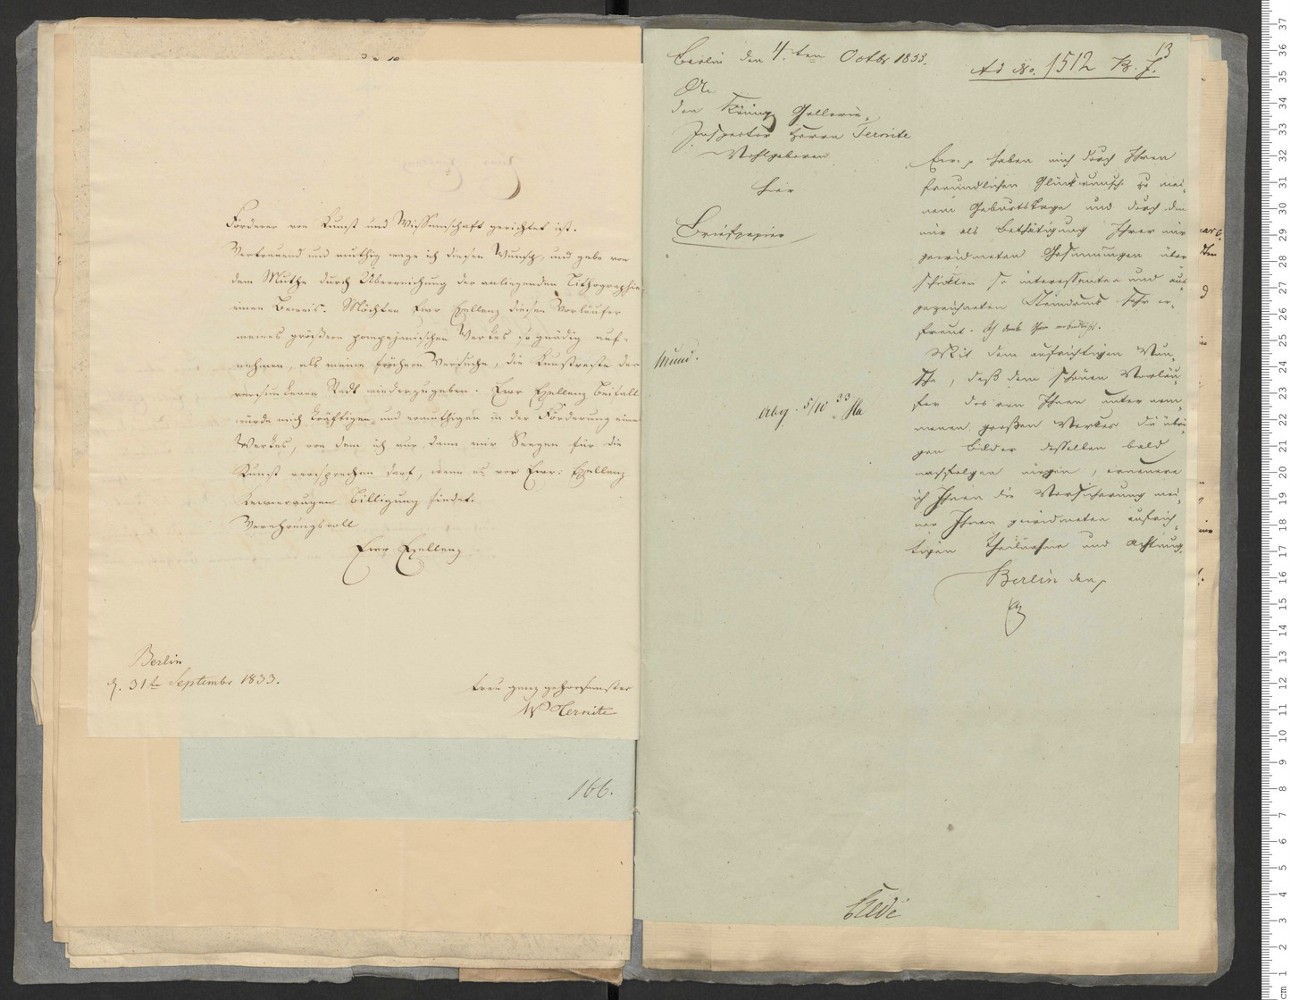 Förderer von Kunst und Wissenschaft gerichtet ist.
Vertrauend und muthig wage ich diesen Wunsch, und gebe von
dem Muthe durch Überreichung der anliegenden Lithographie
einen Beweis. Möchten Euer Exellenz diesen Vorläufer
meines größern pompejanischen Werkes so gnädig auf-
nehmen, als meine frühern Versuche, die Kunstreste der
versunkenen Stadt wiederzugeben. Euer Exellenz Beifall
würde mich kräftigen und ermuthigen in der Förderung eines
Werkes, von dem ich nur dann mir Seegen für die
Kunst versprechen darf, wenn es vor Euer: Exellenz
Billigung findet.
Verehrungsvoll
Euer Exellenz
Berlin
d. 31ten September 1833.
treu ganz gehorsamster
W Ternite
166.
13
Berlin den 4ten Octbr 1833.
Ad No. 1512 B. J.
An
den Königl Gallerie-
Inspector Herrn Ternite
Wohlgeboren
hier
Briefpapier
Mund.
Abg. 5/10 33
Ew. p haben mich durch Ihren
freundlichen Glückwunsch zu mei-
nem Geburtstage und durch den
mir als Bethätigung Ihrer mir
gewidmeten Gesinnungen über-
schickten so interessanten und aus-
gezeichneten Steindruck sehr er-
freut. Ich danke Ihnen verbindlichst.
Mit dem aufrichtigen Wun-
sche, daß dem schönen Vorläu-
fer des von Ihnen unternom-
menen großen Werkes die übri-
gen Bilder desselben bald
nachfolgen mögen, erneuere
ich Ihnen die Versicherung mei-
ner Ihnen gewidmeten aufrich-
tigen Theilnahme und Achtung.
Berlin den p